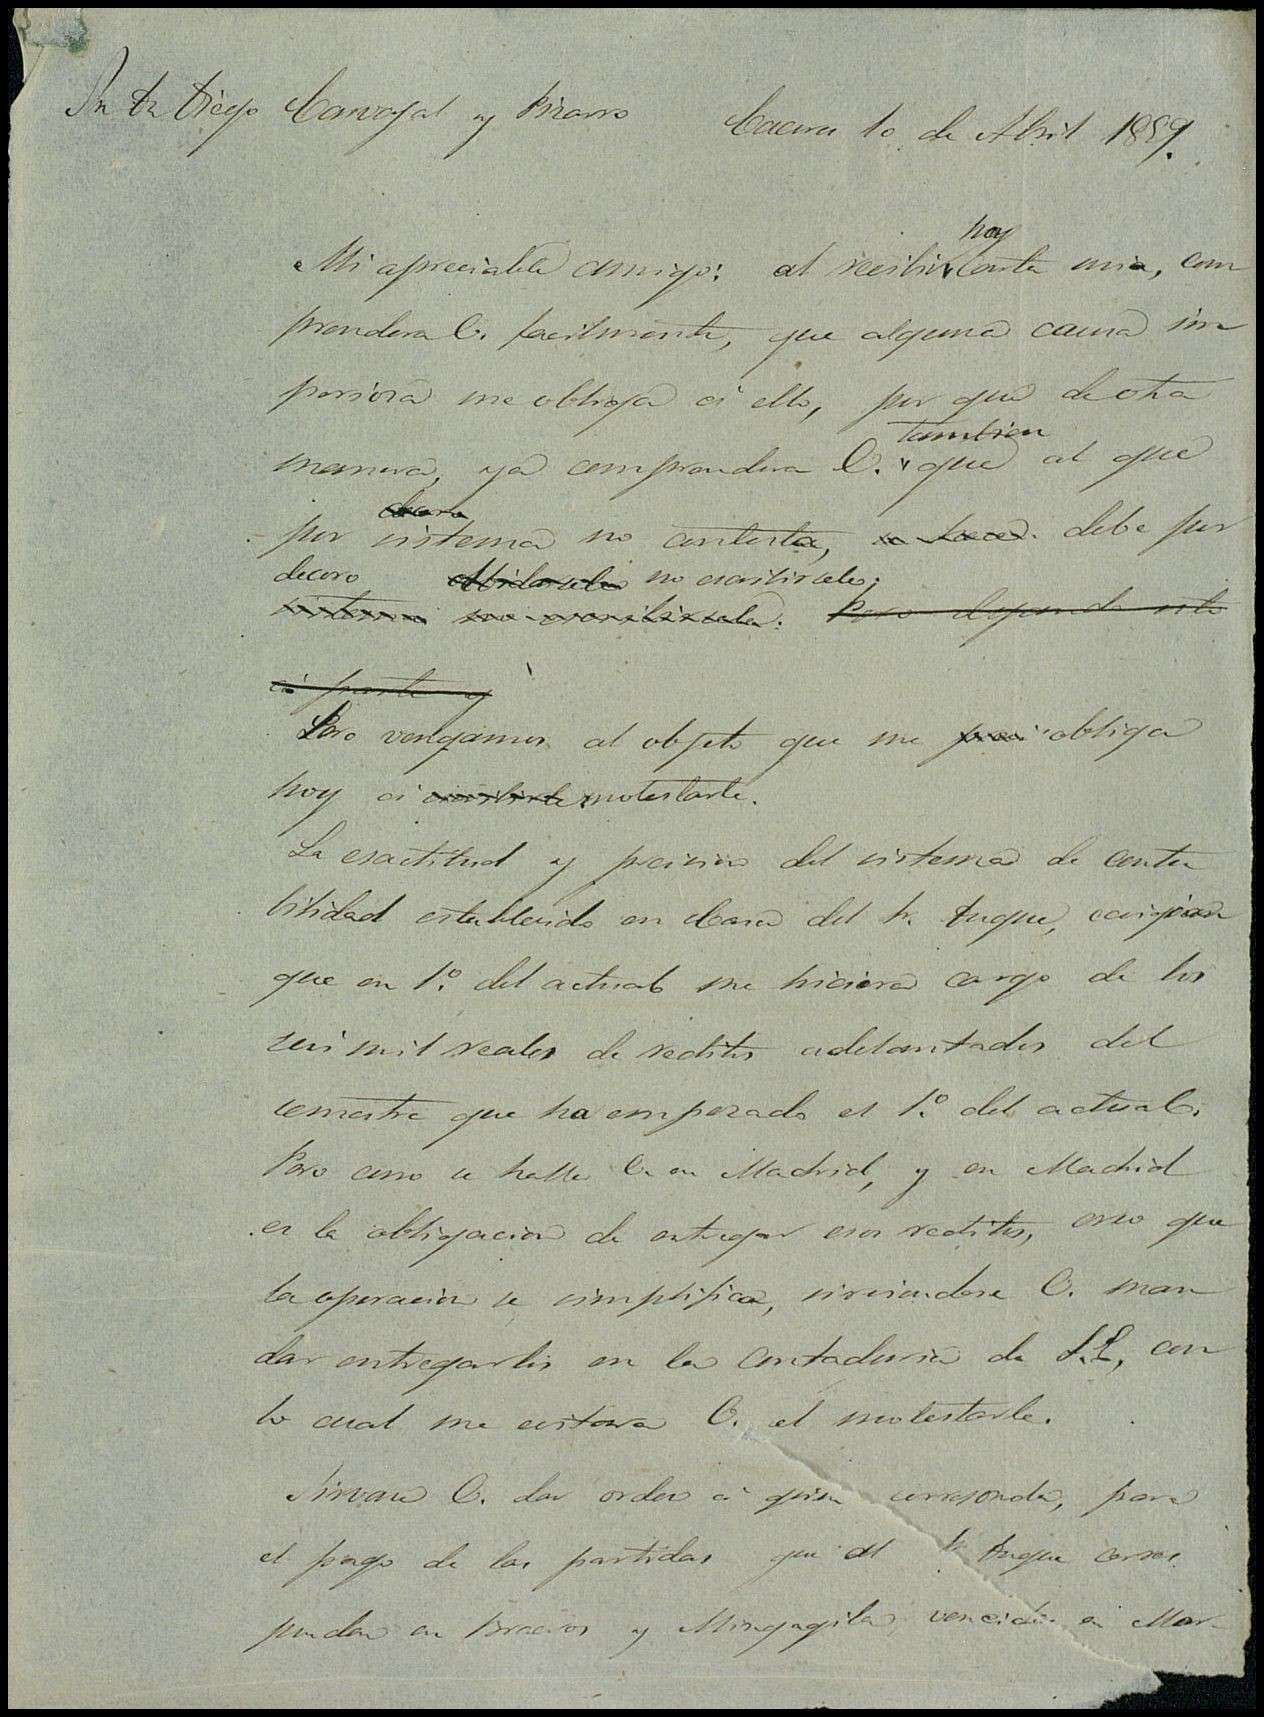 Sr. Dn. Diego Carvajal y Pizarro Caceres 10 de Abril 1859.
hoy
Mi apreciable amigo: al recibir carta mia, com
prendera V. facilmente, que alguna causa im
periosa me obliga á ello, por que de otra
tambien
manera, ya comprendera V. que al que
por sistema no contesta, debe por
decoro no escribirsele;
sistema no escribirsele. Pero dejando esto
á parte y
Pero vengamos al objeto que me obliga
hoy á escribirle molestarle.
La exactitud y precision del sistema de conta
bilidad establecido en Casa del Sr. Duque, exigian
que en 1.º del actual me hiciera cargo de los
seis mil reales de reditos adelantados del
semestre que ha empezado el 1.º del actual.
Pero como se halla V. en Madrid, y en Madrid
es la obligacion de entregar esos reditos, creo que
la operacion se simplifica, sirviendose V. man
dar entregarlos en la Contaduria de S.E., con
lo cual me evitara V. el molestarle.
Sirvase V. dar orden á quien corresponda, para
el pago de las partidas que al Sr. Duque corres
ponden en y Mingagila, vencidas en Mar